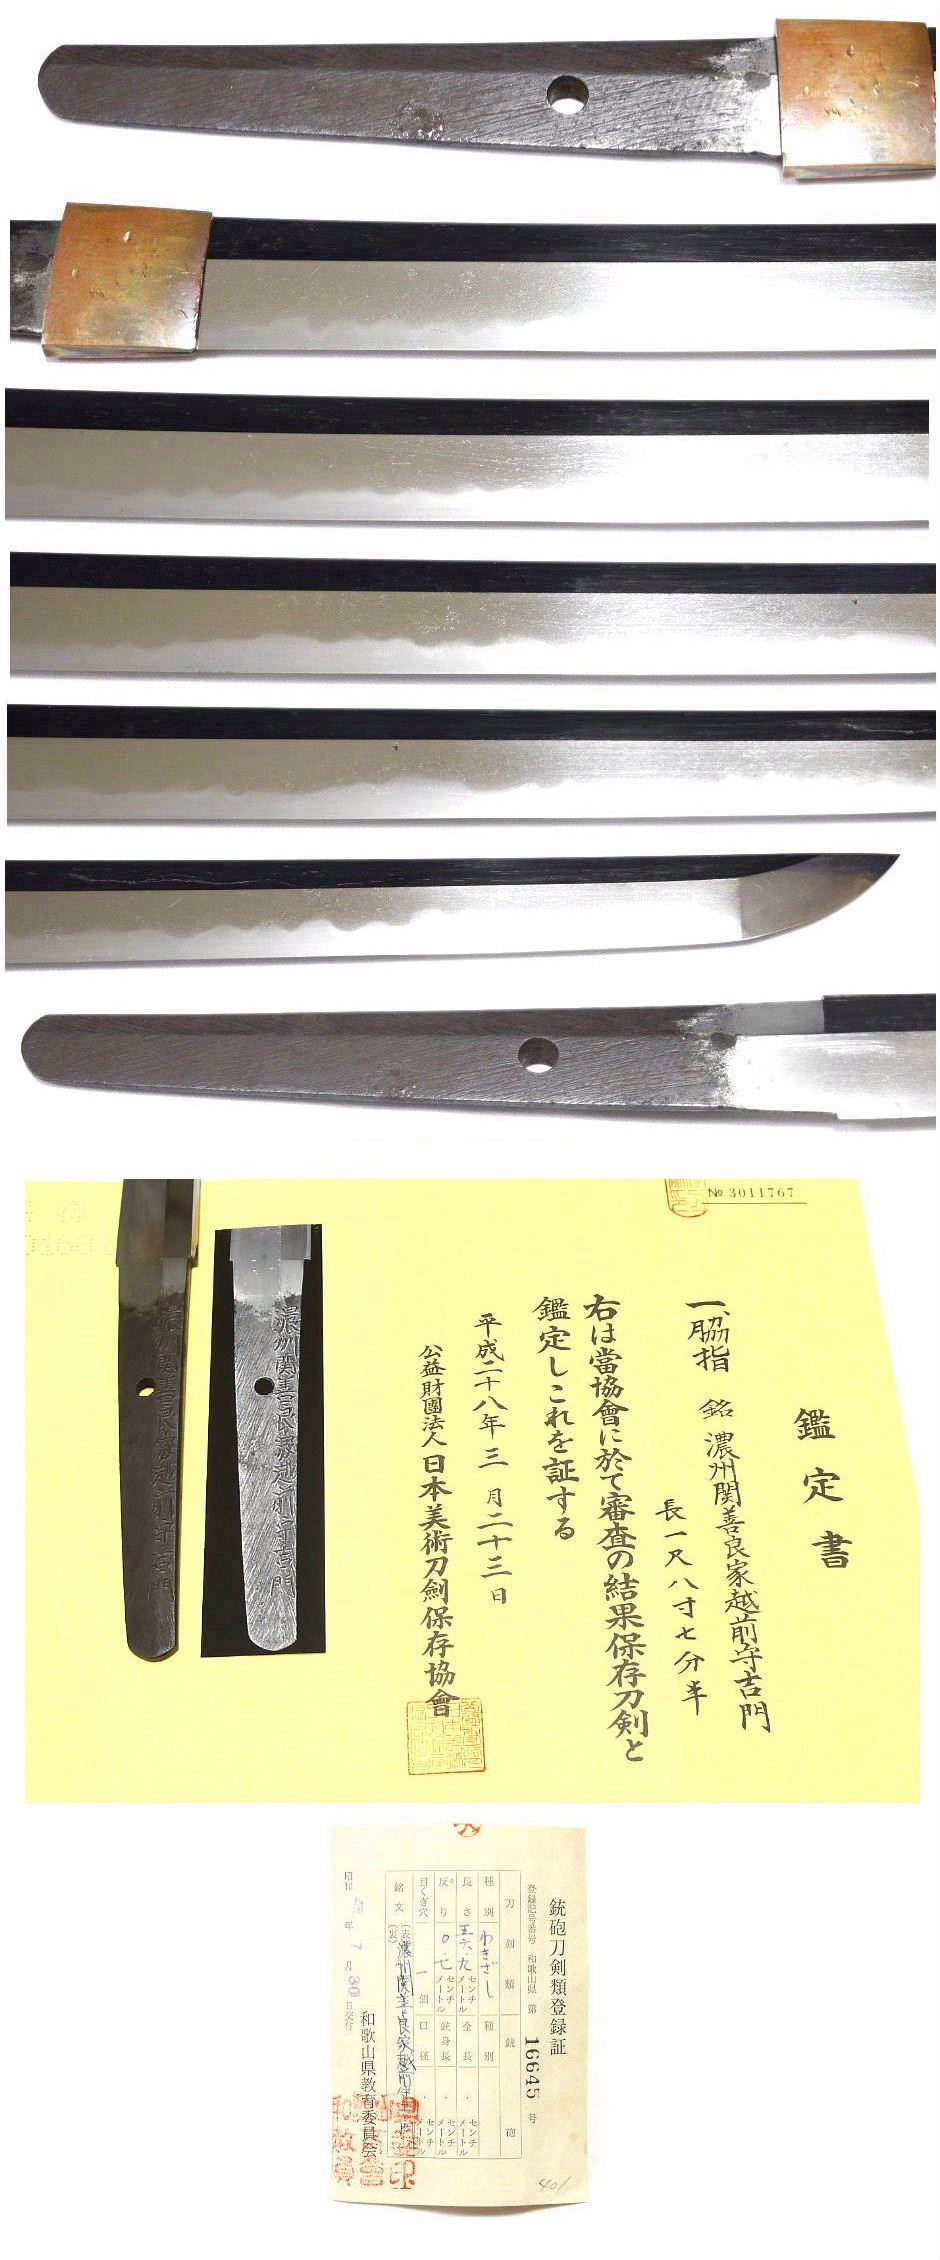 № 3011767
鑑定書
一、脇指 銘 濃州関善良家越前守吉門
長一尺八寸七分半
右は當協會に於て審査の結果保存刀剣と
鑑定しこれを証する
平成二十八年三月二十三日
公益財團法人日本美術刀劍保存協會
濃州関善良家越前守吉門
銃砲刀剣類登録証
登録記号番号 和歌山県 第 16645 号
刀剣類 銃砲
種別 わきざし 種別
長さ 五六.九 センチメートル 全長 . センチメートル
反り 0.七 センチメートル 銃身長 . センチメートル
目くぎ穴 一 個 口径 . センチメートル
銘文 (表) 濃州関善良家越前守吉門
(裏)
昭和 年 7 月 30 日交付
和歌山県教育委員会
401